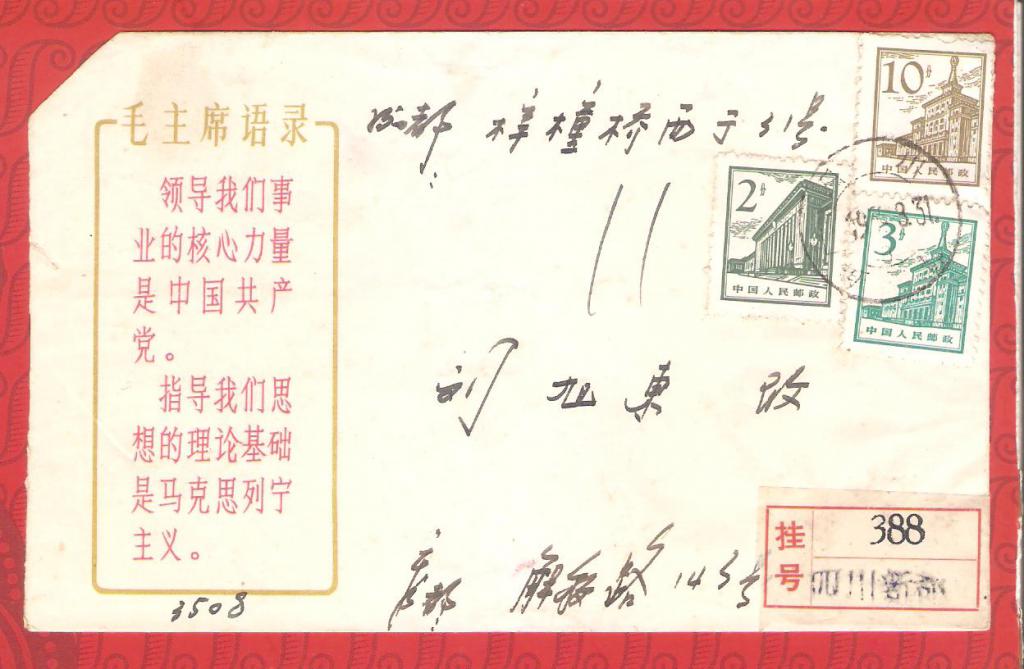 毛主席语录
领导我们事
业的核心力量
是中国共产
党。
指导我们思
想的理论基础
是马克思列宁
主义。
3508
成都 梓橦桥西 31号
刘旭东
解放路 143号
10分
中国人民邮政
2分
中国人民邮政
3分
中国人民邮政
8.31
挂号
388
四川新都